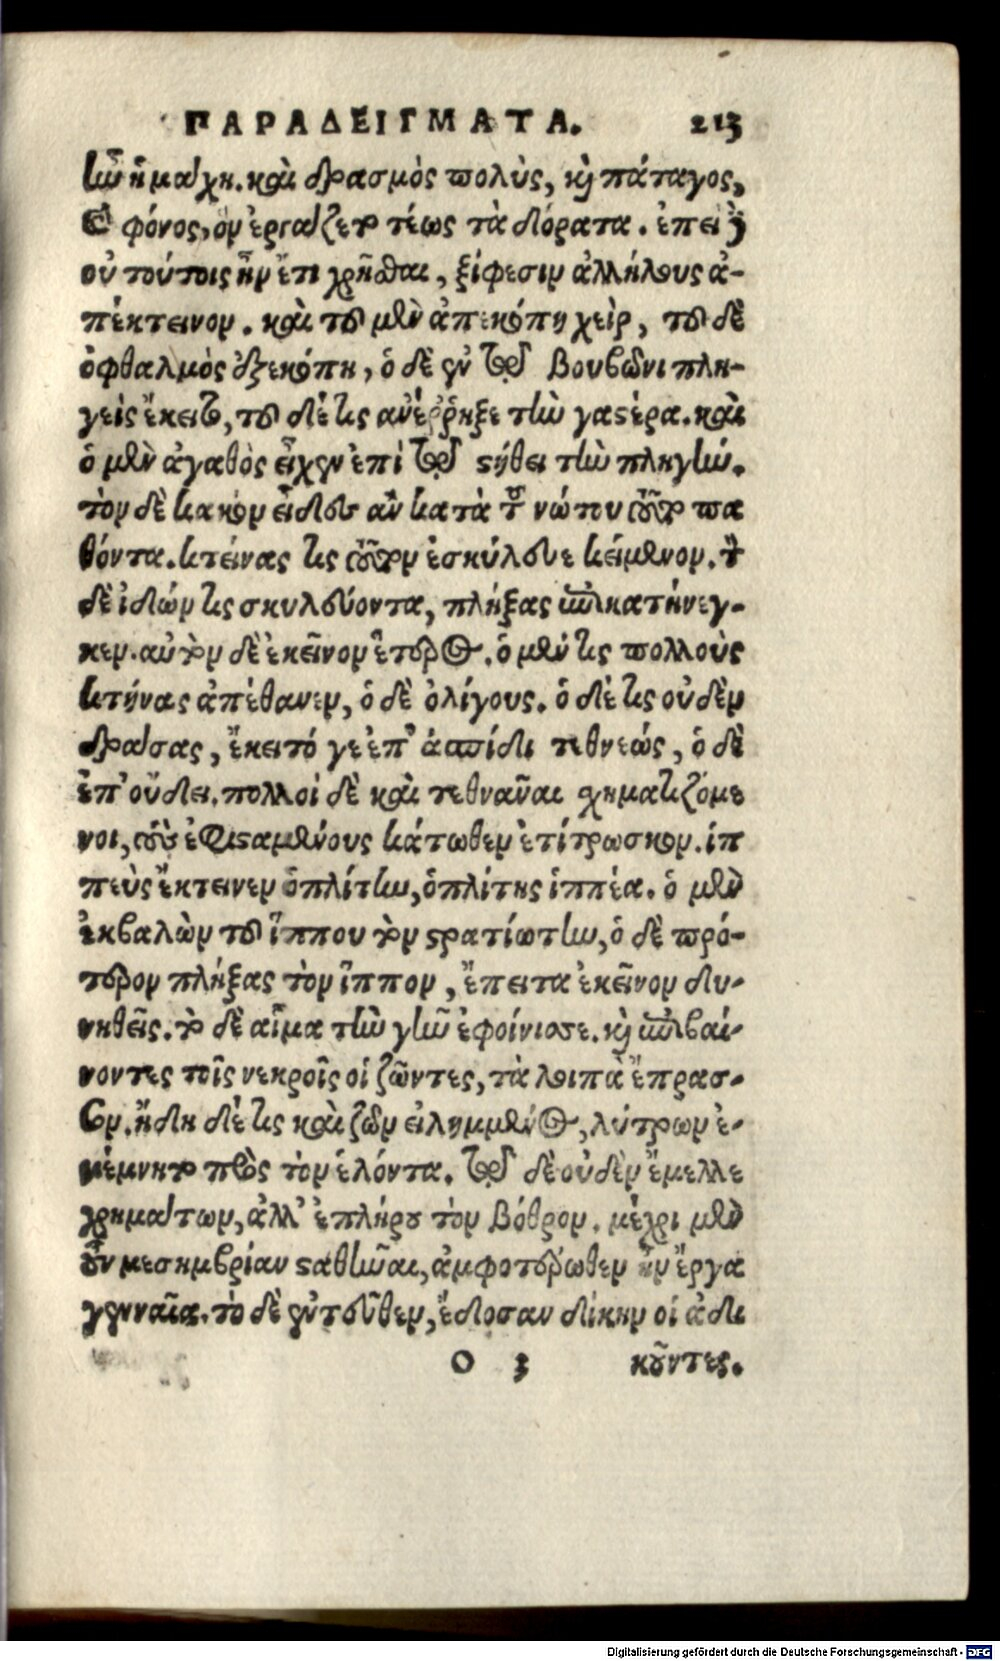 ΠΑΡΑΔΕΙΓΜΑΤΑ. 213
ἦν ἡ μάχη. καὶ δρασμὸς πολὺς, καὶ πάταγος,
καὶ φόνος, ὃν ἐργάζετο τέως τὰ δόρατα. ἐπεὶ δὲ
οὐ τούτοις ἦν ἔτι χρῆσθαι, ξίφεσιν ἀλλήλους ἀ-
πέκτεινον. καὶ τοῦ μὲν ἀπεκόπη χεὶρ, τοῦ δὲ
ὀφθαλμὸς ἐξεκόπη, ὁ δὲ ἐν τῷ βουβῶνι πλη-
γεὶς ἔκειτο, τοῦ δέ τις ἀνέῤῥηξε τὴν γαστέρα. καὶ
ὁ μὲν ἀγαθὸς εἶχεν ἐπὶ τῷ στήθει τὴν πληγήν.
τὸν δὲ κακὸν εἶδες ἂν κατὰ τοῦ νώτου τοῦτο πα
θόντα. κτείνας τις τοῦτον ἐσκύλευε κείμενον. τὸν
δὲ ἰδών τις σκυλεύοντα, πλήξας ἐπικατήνεγ-
κεν. αὐτὸν δὲ ἐκεῖνον ἕτερος. ὁ μέν τις πολλοὺς
κτήνας ἀπέθανεν, ὁ δὲ ὀλίγους. ὁ δέ τις οὐδὲν
δράσας, ἔκειτό γε ἐπ' ἀσπίδι τεθνεώς, ὁ δὲ
ἐπ' οὔδει. πολλοὶ δὲ καὶ τεθνᾶναι σχηματιζόμε
νοι, τοὺς ἐφισαμένους κάτωθεν ἐτίτρωσκον. ἱπ
πεὺς ἔκτεινεν ὁπλίτην, ὁπλίτης ἱππέα. ὁ μὲν
ἐκβαλὼν τοῦ ἵππου τὸν στρατιώτην, ὁ δὲ πρό-
τερον πλήξας τὸν ἵππον, ἔπειτα ἐκεῖνον δυ-
νηθεῖς. τὸ δὲ αἷμα τὴν γῆν ἐφοίνισσε. καὶ ἐπιβαί-
νοντες τοῖς νεκροῖς οἱ ζῶντες, τὰ λοιπὰ ἔπρασ-
σον. ἤδη δέ τις καὶ ζῶν εἰλημμένος, λύτρων ἐ-
μέμνητο πρὸς τὸν ἑλόντα. τῷ δὲ οὐδὲν ἔμελλε
χρημάτων, ἀλλ' ἐπλήρου τὸν βόθρον. μέχρι μὲν
οὖν μεσημβρίαν σταθῆναι, ἀμφοτέρωθεν ἦν ἔργα
γενναῖα. τὸ δὲ ἐντεῦθεν, ἔδοσαν δίκην οἱ ἀδι
O 3 κοῦντες.
Digitalisierung gefördert durch die Deutsche Forschungsgemeinschaft - DFG